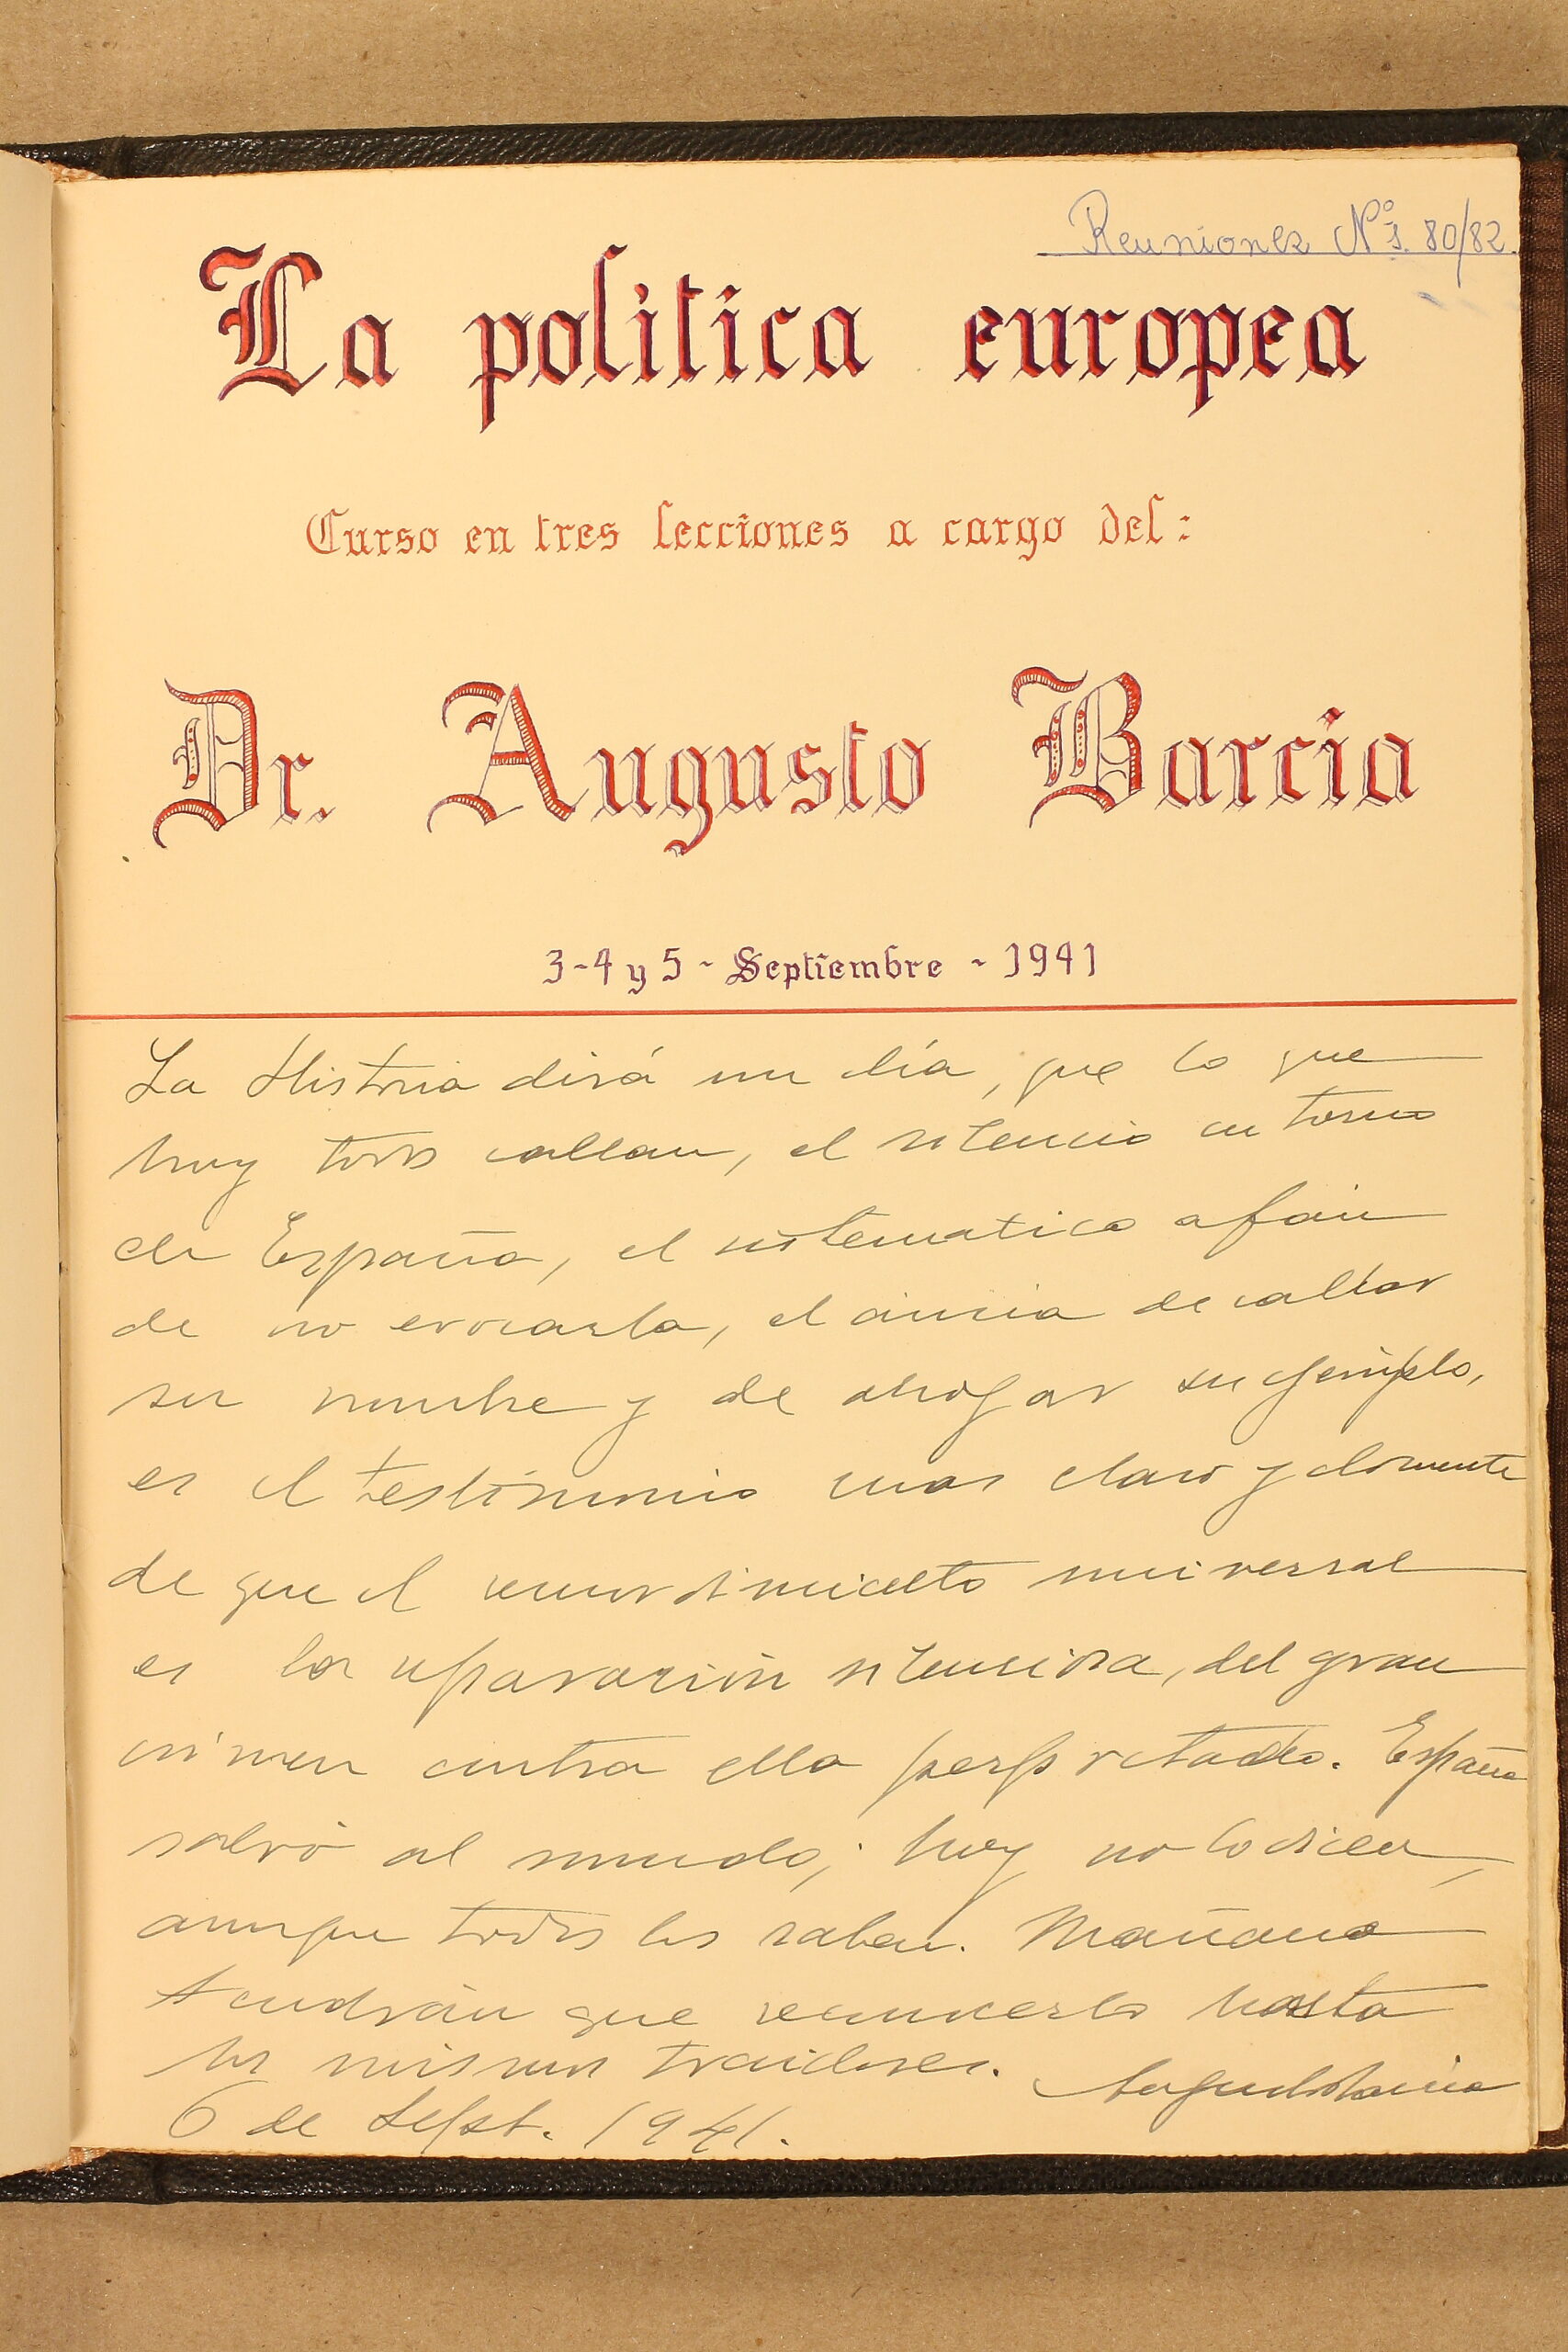 Reuniones Nºs. 80/82.
La politica europea
Curso en tres lecciones a cargo del:
Dr. Augusto Barcia
3-4 y 5 - Septiembre - 1941
La Historia dirá un día, que lo que
hoy todos callan, el silencio en torno
de España, el sistematico afán
de no evocarla, el ansia de callar
su nombre y de ahogar su ejemplo,
es el testimonio mas claro y
de que el remordimiento universal
es la reparación silenciosa, del gran
crimen contra ella perpretado. España
salvó al mundo; hoy no lo dicen,
aunque todos los saben. Mañana
tendrán que reconocerlo hasta
los mismos traidores.
Augusto Barcia
6 de Sept. 1941.